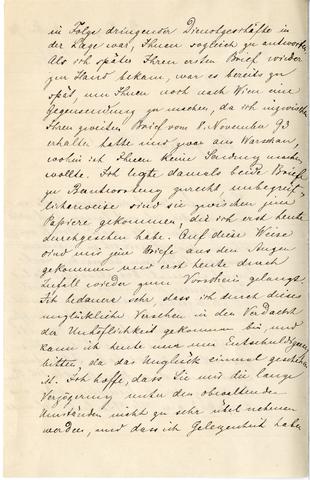 in Folge dringender Dienstgeschäfte in
der Lage war, Ihnen sogleich zu antworten.
Als ich später Ihren ersten Brief wieder
zur Hand bekam, war es bereits zu
spät, um Ihnen noch nach Wien eine
Gegensendung zu machen, da ich inzwischen
Ihren zweiten Brief vom 8. November 93
erhalten hatte und zwar aus Warschau,
wohin ich Ihnen keine Sendung machen
wollte. Ich legte damals beide Briefe
zu Beantwortung zurecht, unbegreif-
licherweise sind sie zwischen jene
Papiere gekommen, die ich erst heute
durchgesehen habe. Auf diese Weise
sind mir jene Briefe aus den Augen
gekommen und erst heute durch
Zufall wieder zum Vorschein gelangt.
Ich bedauere sehr, dass ich durch dieses
unglückliche Versehen in den Verdacht
der Unhöflichkeit gekommen bin, und
kann ich heute nur um Entschuldigung
bitten, da das Unglück einmal geschehen
ist. Ich hoffe, dass Sie mir die lange
Verzögerung unter den obwaltenden
Umständen nicht zu sehr übel nehmen
werden, und dass ich Gelegenheit haben